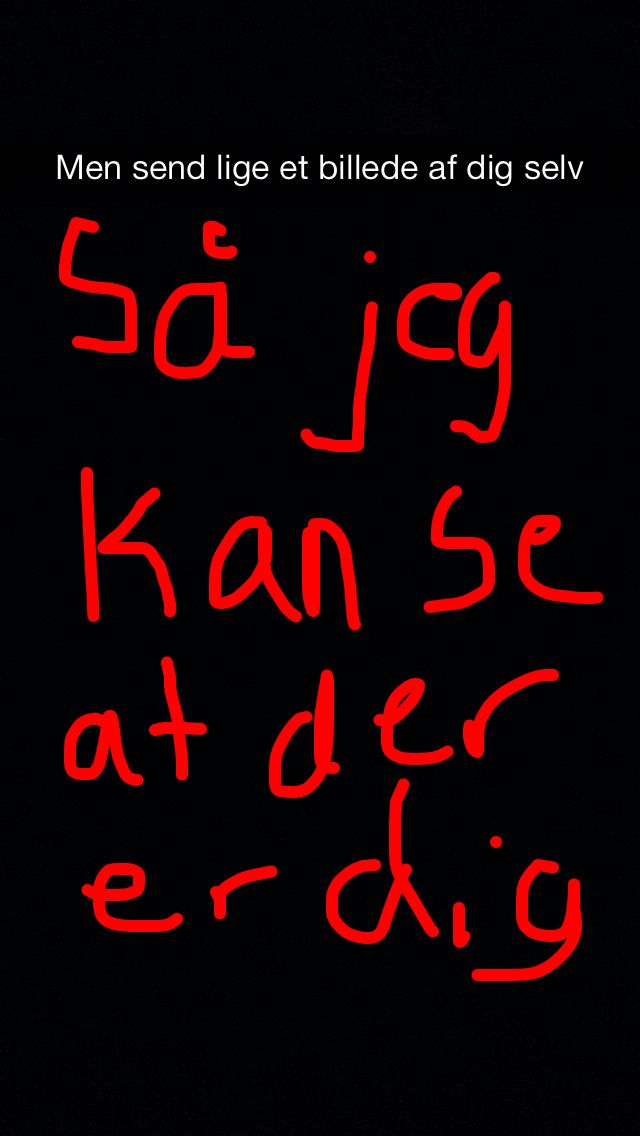 Men send lige et billede af dig selv
Så jeg
kan se
at der
er dig